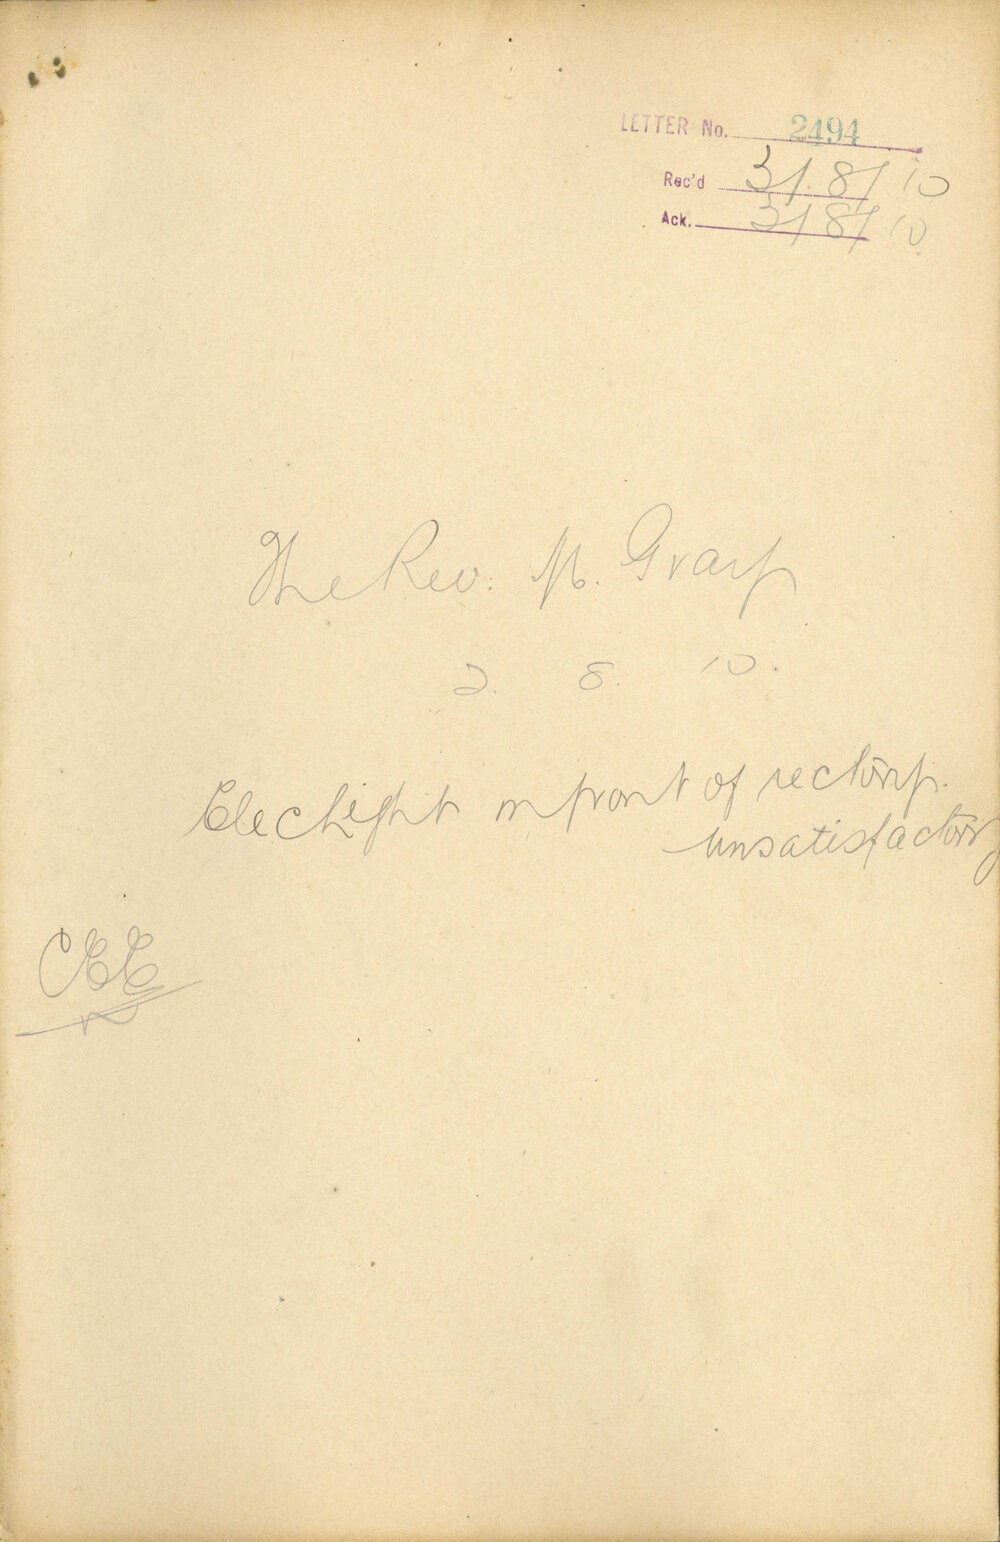 LETTER No. 2494
Rec'd 3/8/10
Ack. 3/8/10
The Rev. M. Gray
2. 8. 10.
Elec Light in front of rectory.
unsatisfactory
CEE